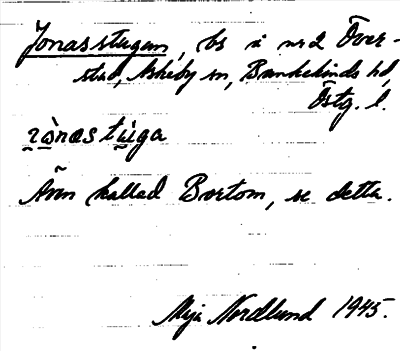 Jonasstugan, bs i nr 2 Över-
stad, Askeby sn, Bankekinds hd,
Östg. l.
Även kallad Bortom, se detta.
Maja Nordlund 1945.